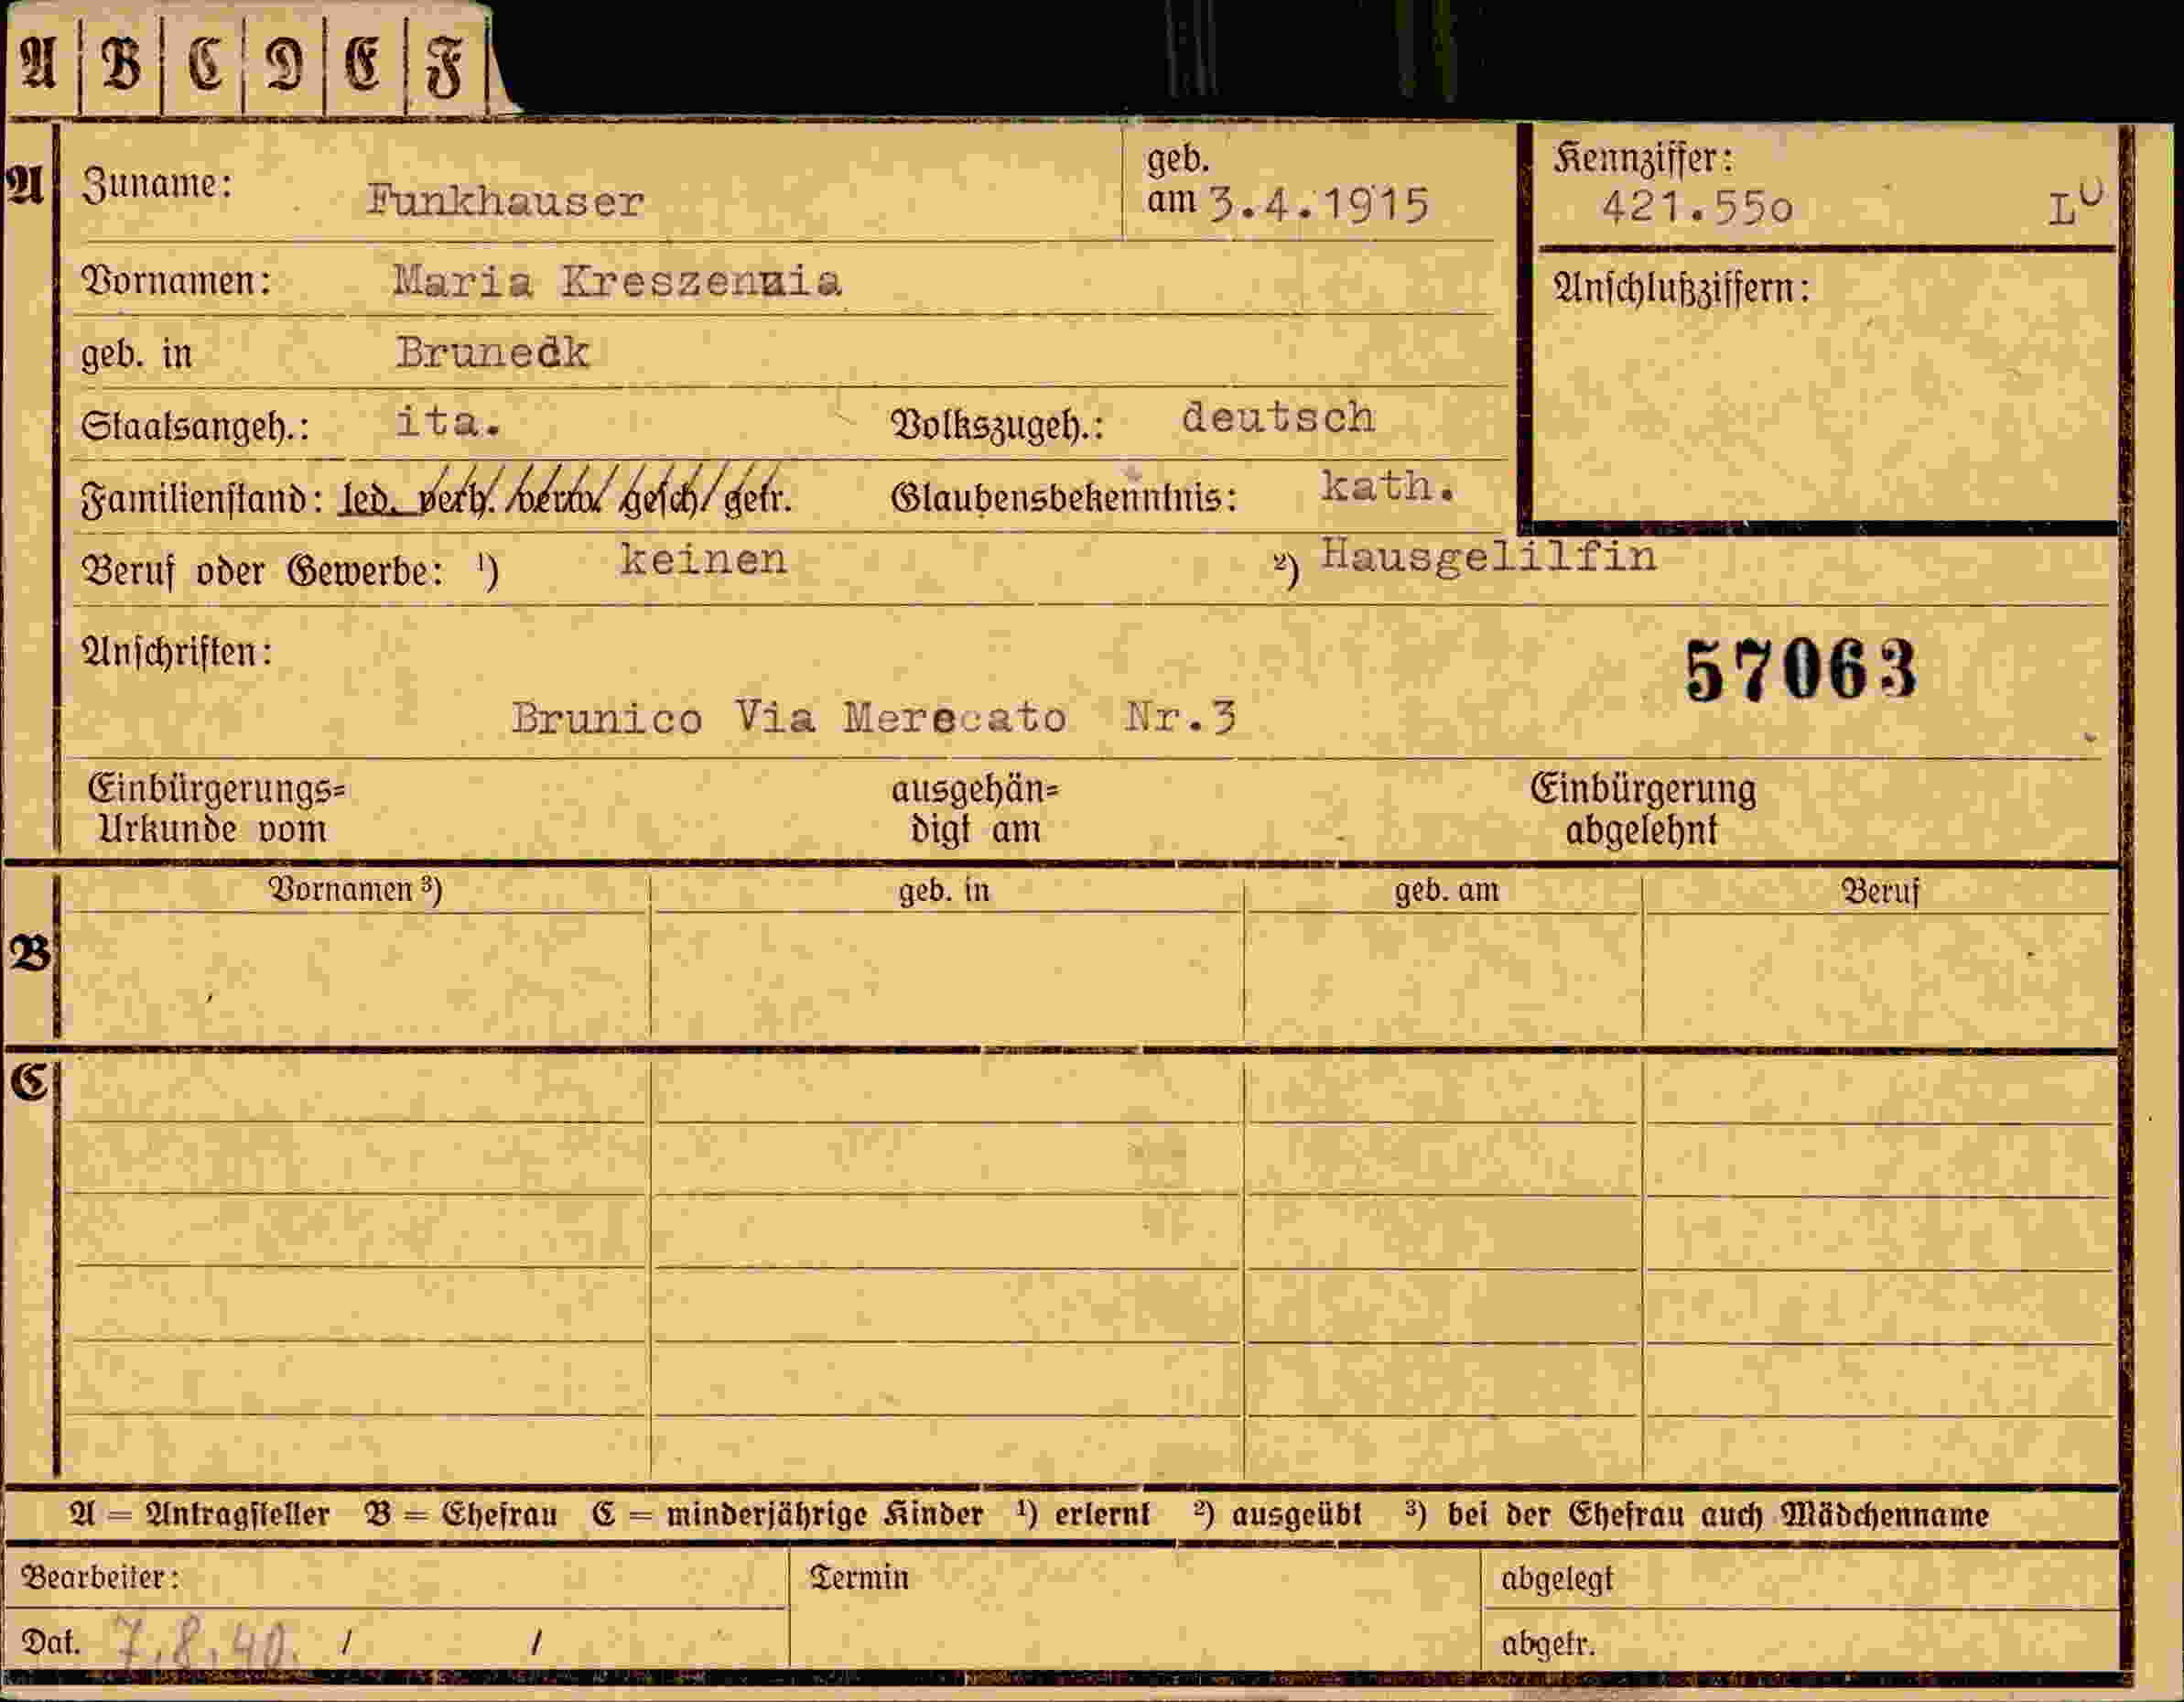 A B C D E F
A Zuname: Funkhauser geb. am 3.4.1915 Kennziffer: 421.55o LU
Vornamen: Maria Kreszennia Anschlußziffern:
geb. in Brunedk
Staatsangeh.: ita. Volkszugeh.: deutsch
Familienstand: led. verh. verw. gesch. getr. Glaubensbekenntnis: kath.
Beruf oder Gewerbe: ¹) keinen ²) Hausgelilfin
Anschriften: 57063
Brunico Via Merecato Nr.3
Einbürgerungs= ausgehän= Einbürgerung
Urkunde vom digt am abgelehnt
Vornamen ³) geb. in geb. am Beruf
B
C
A = Antragsteller B = Ehefrau C = minderjährige Kinder ¹) erlernt ²) ausgeübt ³) bei der Ehefrau auch Mädchenname
Bearbeiter: Termin abgelegt
Dat. 7.8.40. / / abgetr.